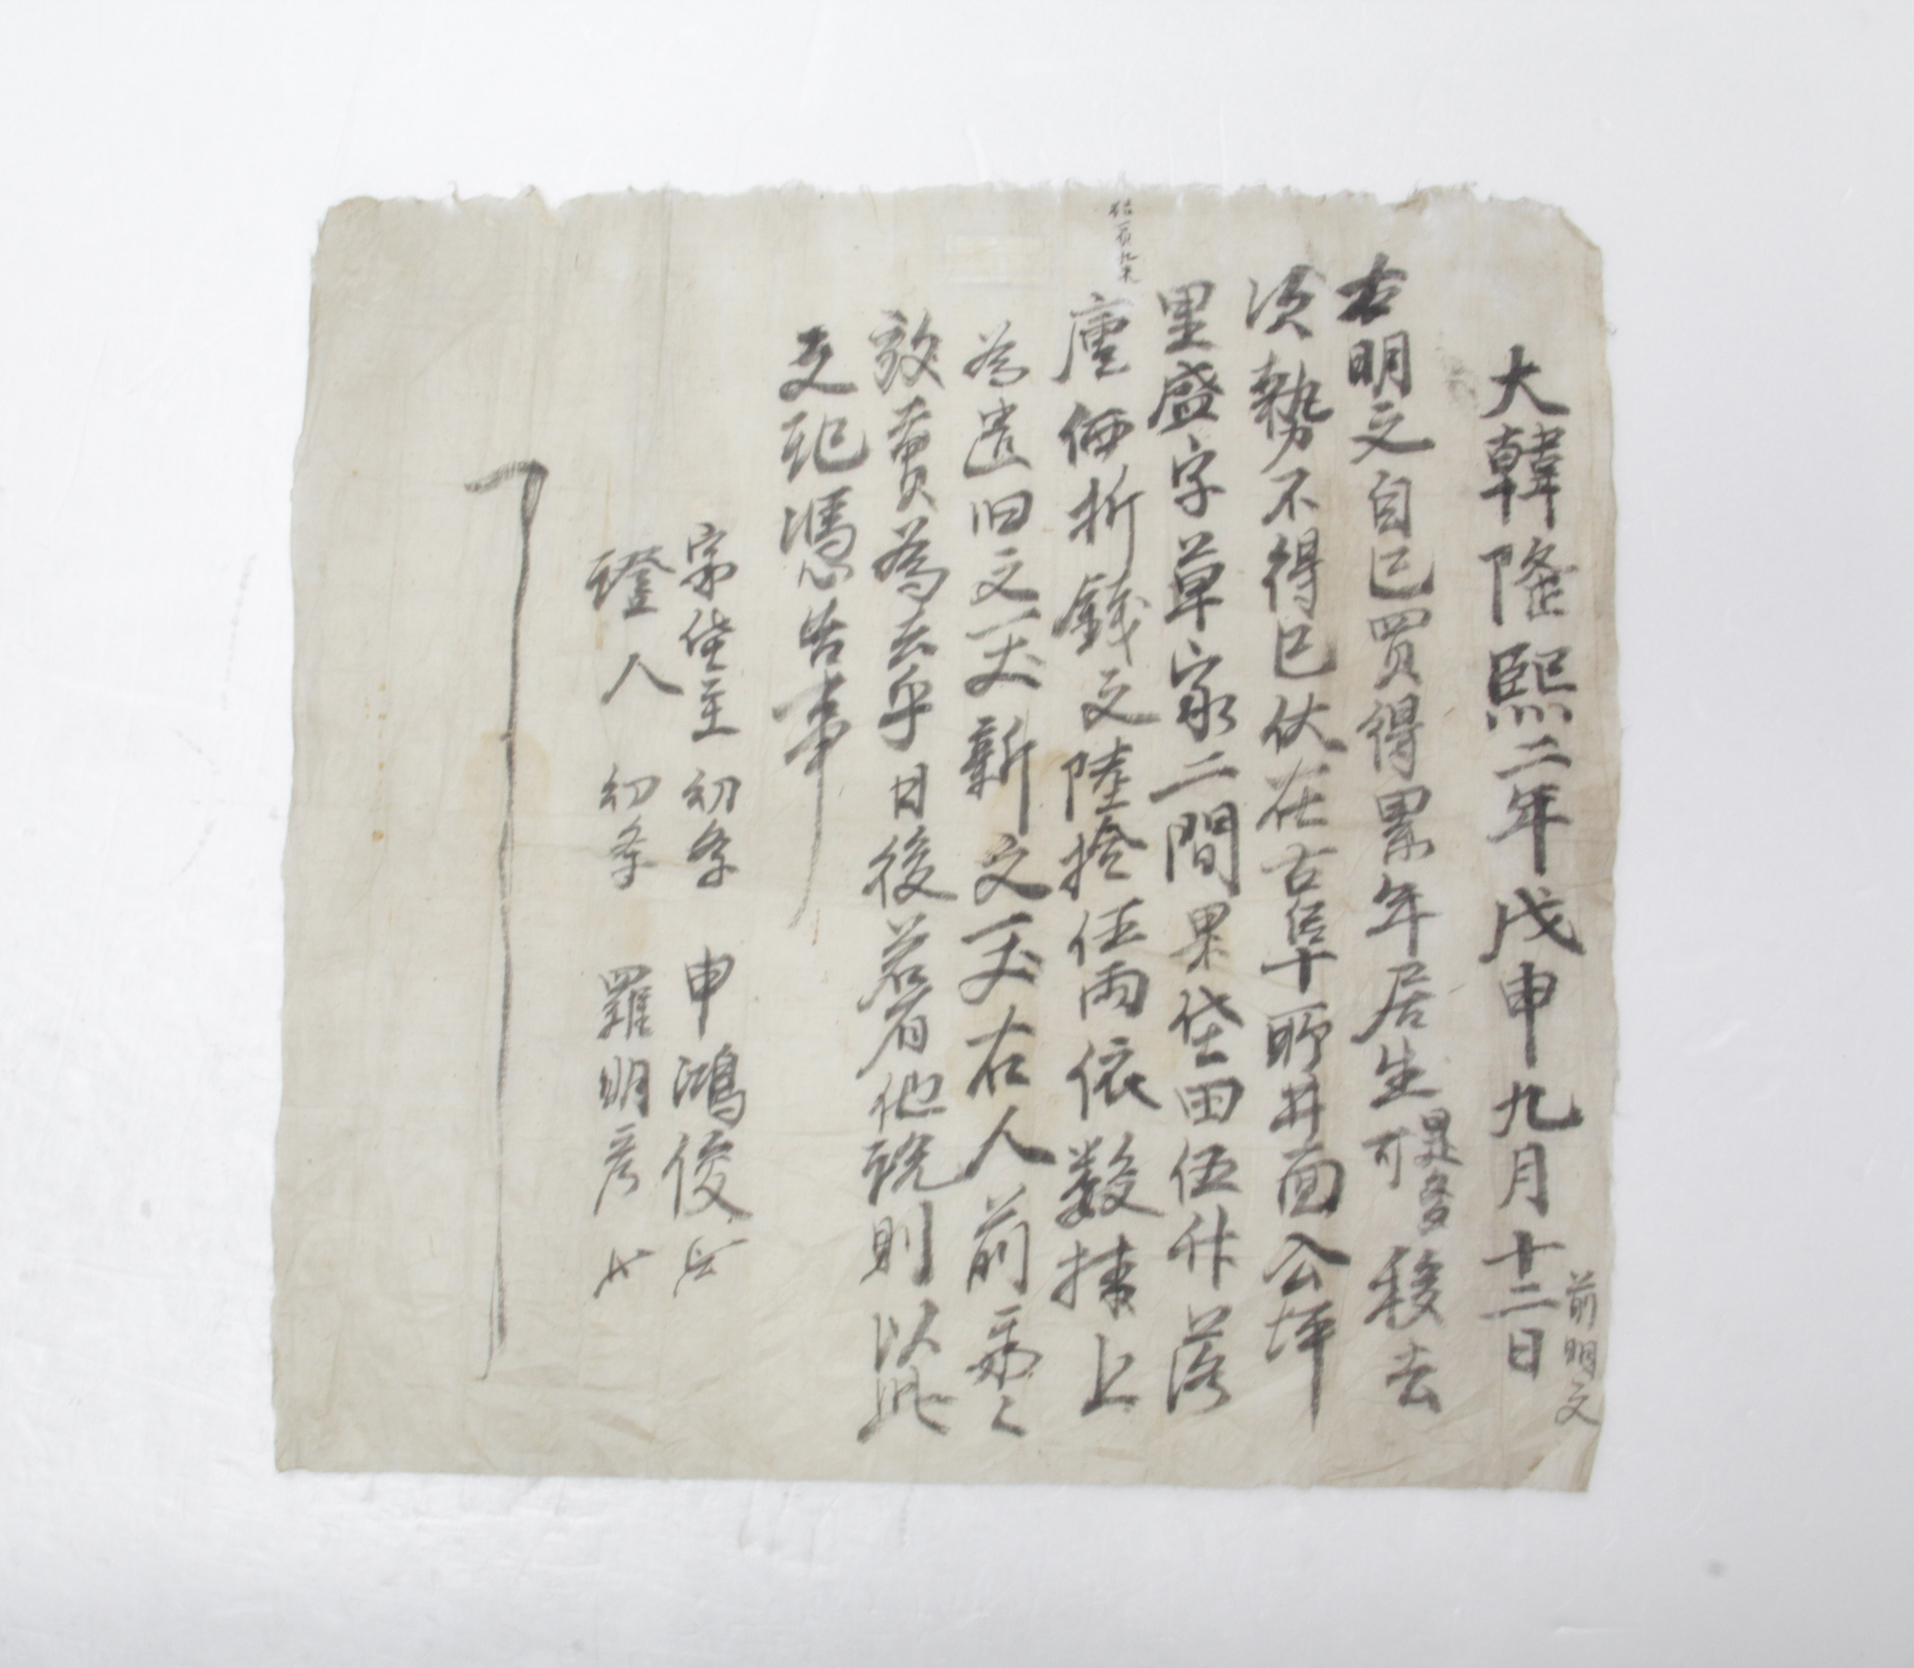 大韓隆熙二年戊申九月十二日 前明文
右明文自己買得累年居生是多可移去
次勢不得已伏在古阜所井面公坪
里盛字草家二間果垈田伍升落
庫価折錢文陸拾伍兩依數捧上
為遣旧文一丈新文一丈右人前
放賣為去乎日後若有他說則以此
文記憑告事
家垈主 初条 申鴻俊
證人 初条 羅明彦